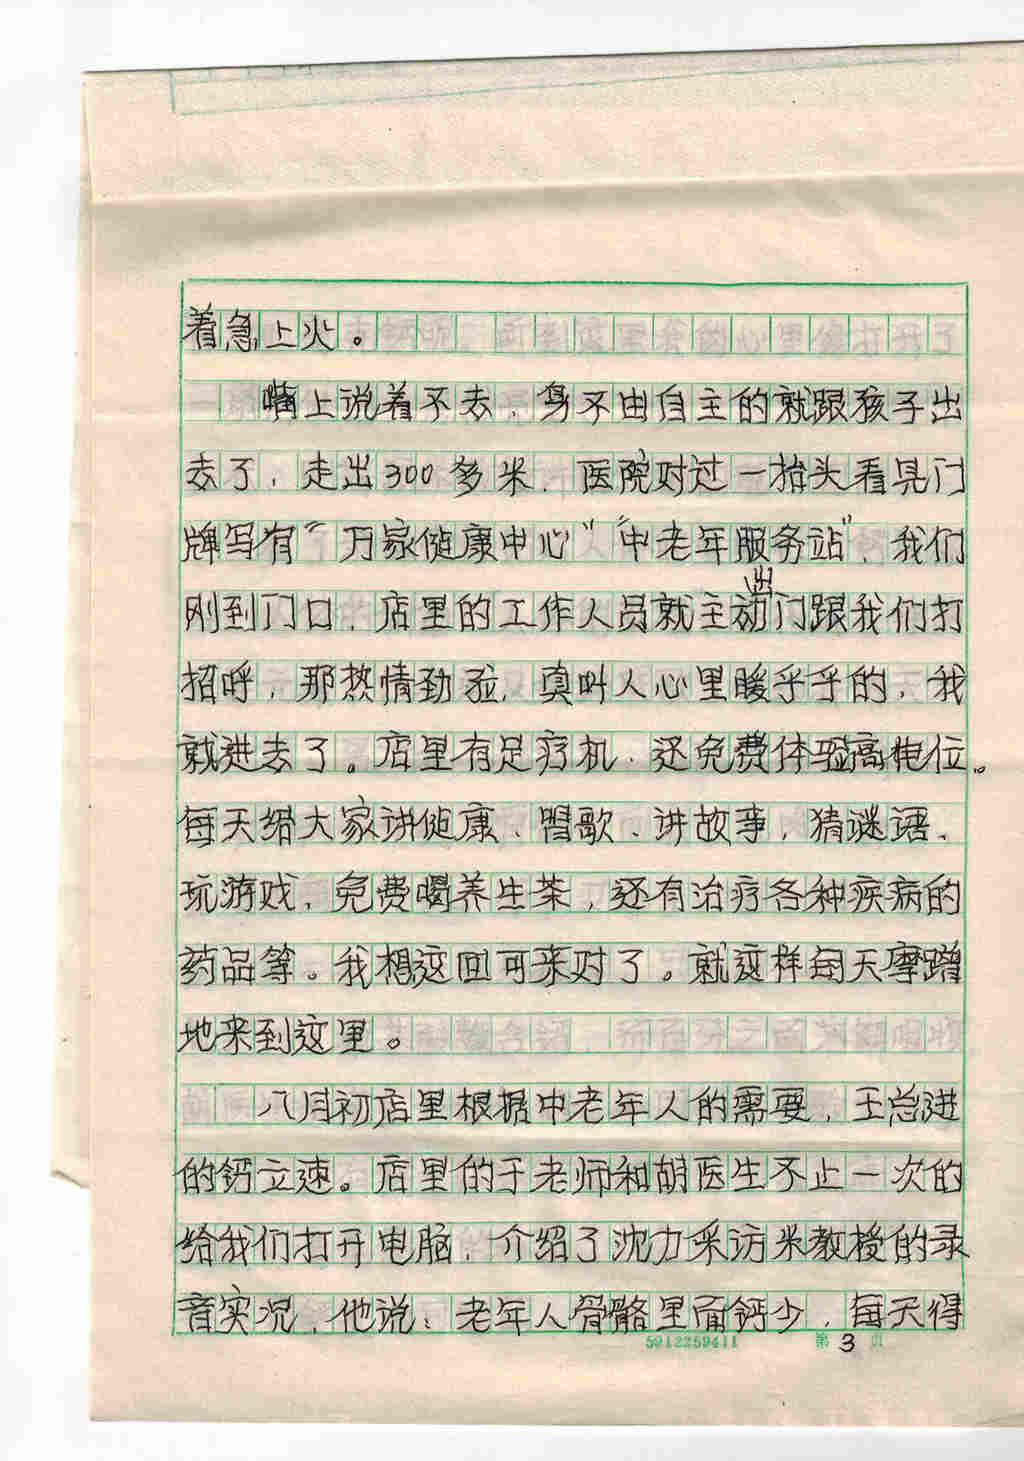 着急上火。
嘴上说着不去，身不由自主的就跟孩子出
去了，走出300多米，医院对过一抬头看见门
牌写有“万家健康中心”“中老年服务站”，我们
刚到门口，店里的工作人员就主动出门跟我们打
招呼，那热情劲拉，真叫人心里暖乎乎的，我
就进去了。店里有足疗机，还免费体验高电位。
每天给大家讲健康、唱歌、讲故事，猜谜语、
玩游戏，免费喝养生茶，还有治疗各种疾病的
药品等。我想这回可来对了。就这样每天摩蹭
地来到这里。
八月初店里根据中老年人的需要，王总进
的钙立速。店里的于老师和胡医生不止一次的
给我们打开电脑，介绍了沈力采访米教授的录
音实况，他说：老年人骨骼里面钙少，每天得
5912259411 第3页